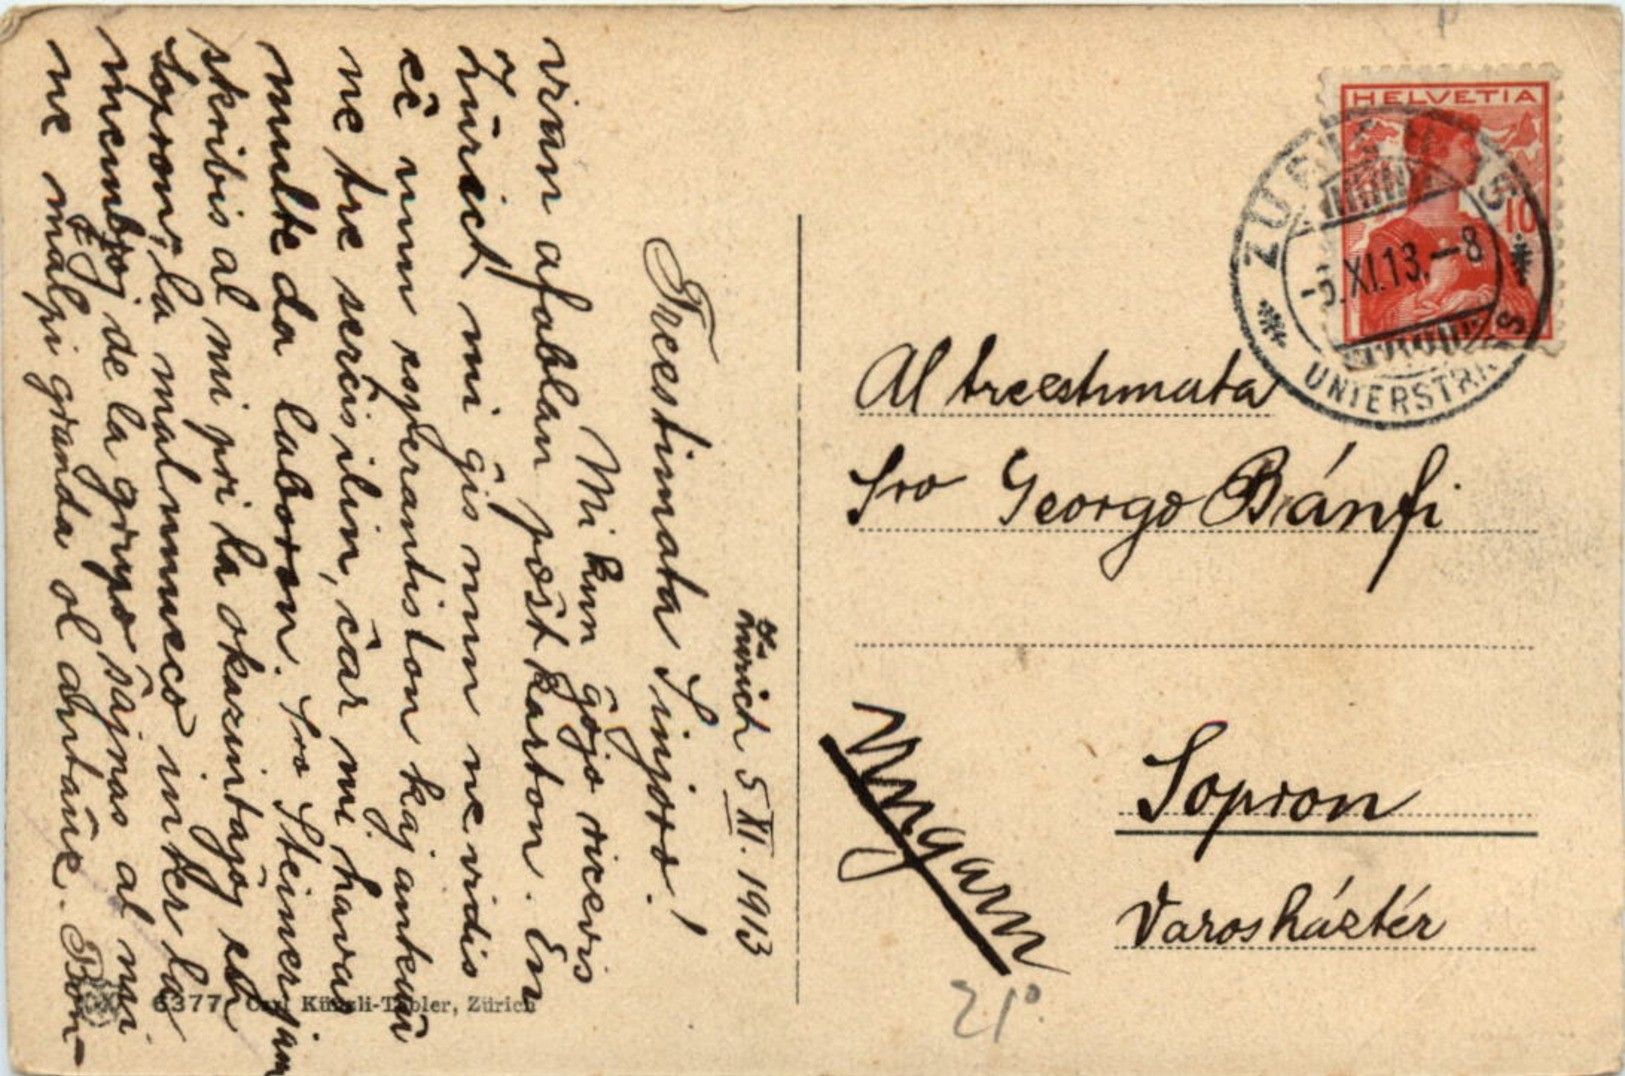 Zürich 5 XI. 1913
Treestimata Sinjoro!
Mi kun ĝojo ricevis
vian afablan poŝtkarton. En
Zürich mi ĝis nun ne vidis
eĉ unu esperantiston kaj ankaŭ
ne tre serĉis ilin, ĉar mi havas
multe da laboron. Sro Steiner jam
skribis al mi pri la okazintaĵoj en
Sopron, la malnuneco inter la
membroj de la grupo ŝajnas al mi
ne malpi granda ol antaŭe. Bon-
HELVETIA
10
ZÜRICH 15
-5.XI.13.-8
UNTERSTRASS
Al treestimata
Sro Georgo Bánfi
Sopron
Varosháztér
Ungarn
21°.
6377 Künzli-Tobler, Zürich